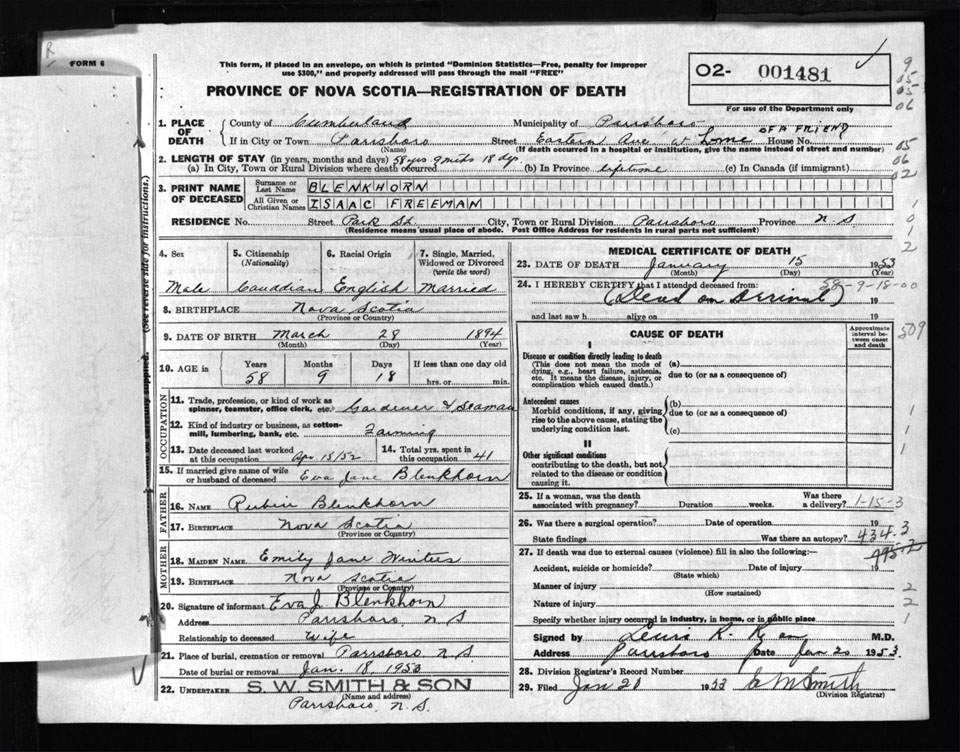 R
FORM 6
This form, if placed in an envelope, on which is printed "Dominion Statistics—Free, penalty for improper
use $300," and properly addressed will pass through the mail "FREE"
PROVINCE OF NOVA SCOTIA—REGISTRATION OF DEATH
O2- 001481
For use of the Department only
9
05
05
06
1. PLACE OF DEATH
County of Cumberland Municipality of Parrsboro
If in City or Town Parrsboro Street Eastern Ave at home OF A FRIEND House No.
(Name) (If death occurred in a hospital or institution, give the name instead of street and number)
05
06
02
2. LENGTH OF STAY (in years, months and days) 58 yrs 9 mths 18 dys
(a) In City, Town or Rural Division where death occurred (b) In Province lifetime (c) In Canada (if immigrant)
3. PRINT NAME OF DECEASED
Surname or Last Name BLENKHORN
All Given or Christian Names ISAAC FREEMAN
RESIDENCE No. Street Park St. City, Town or Rural Division Parrsboro Province N.S.
(Residence means usual place of abode. Post Office Address for residents in rural parts not sufficient)
1
0
1
2
(See reverse side for instructions.)
4. Sex
Male
5. Citizenship
(Nationality)
Canadian
6. Racial Origin
English
7. Single, Married,
Widowed or Divorced
(write the word)
Married
8. BIRTHPLACE Nova Scotia
(Province or Country)
9. DATE OF BIRTH March 28 1894
(Month) (Day) (Year)
10. AGE in
Years Months Days If less than one day old
58 9 18 hrs. or min.
OCCUPATION
11. Trade, profession, or kind of work as
spinner, teamster, office clerk, etc. Gardener & Seaman
12. Kind of industry or business, as cotton-
mill, lumbering, bank, etc. Farming
13. Date deceased last worked
at this occupation Apr. 15/52
14. Total yrs. spent in
this occupation 41
15. If married give name of wife
or husband of deceased Eva Jane Blenkhorn
FATHER
16. NAME Rubin Blenkhorn
17. BIRTHPLACE Nova Scotia
(Province or Country)
MOTHER
18. MAIDEN NAME Emily Jane Winters
19. BIRTHPLACE Nova Scotia
(Province or Country)
20. Signature of informant Eva J. Blenkhorn
Address Parrsboro, N.S
Relationship to deceased Wife
21. Place of burial, cremation or removal Parrsboro N.S.
Date of burial or removal Jan. 18, 1953
22. UNDERTAKER S. W. SMITH & SON
(Name and address)
Parrsboro, N.S.
MEDICAL CERTIFICATE OF DEATH
23. DATE OF DEATH January 15 1953
(Month) (Day) (Year)
24. I HEREBY CERTIFY that I attended deceased from: 58-9-18-00
(Dead on Arrival) 19
and last saw h alive on 19
CAUSE OF DEATH
Approximate
interval be-
tween onset
and death
509
I
Disease or condition directly leading to death
(This does not mean the mode of
dying, e.g., heart failure, asthenia,
etc. It means the disease, injury, or
complication which caused death.)
(a)
due to (or as a consequence of)
Antecedent causes
Morbid conditions, if any, giving
rise to the above cause, stating the
underlying condition last.
(b)
due to (or as a consequence of)
(c)
1
1
II
Other significant conditions
contributing to the death, but not
related to the disease or condition
causing it.
1
25. If a woman, was the death
associated with pregnancy? Duration weeks. Was there
a delivery? 1-15-3
26. Was there a surgical operation? Date of operation 19
State findings Was there an autopsy? 434.3
27. If death was due to external causes (violence) fill in also the following:— 795.2
Accident, suicide or homicide? Date of injury 19
(State which)
Manner of injury
(How sustained)
2
Nature of injury
2
Specify whether injury occurred in industry, in home, or in public place
1
Signed by Lewis R. Ryan M.D.
Address Parrsboro Date Jan 20 1953.
28. Division Registrar's Record Number
29. Filed Jan 20 1953
(Division Registrar)